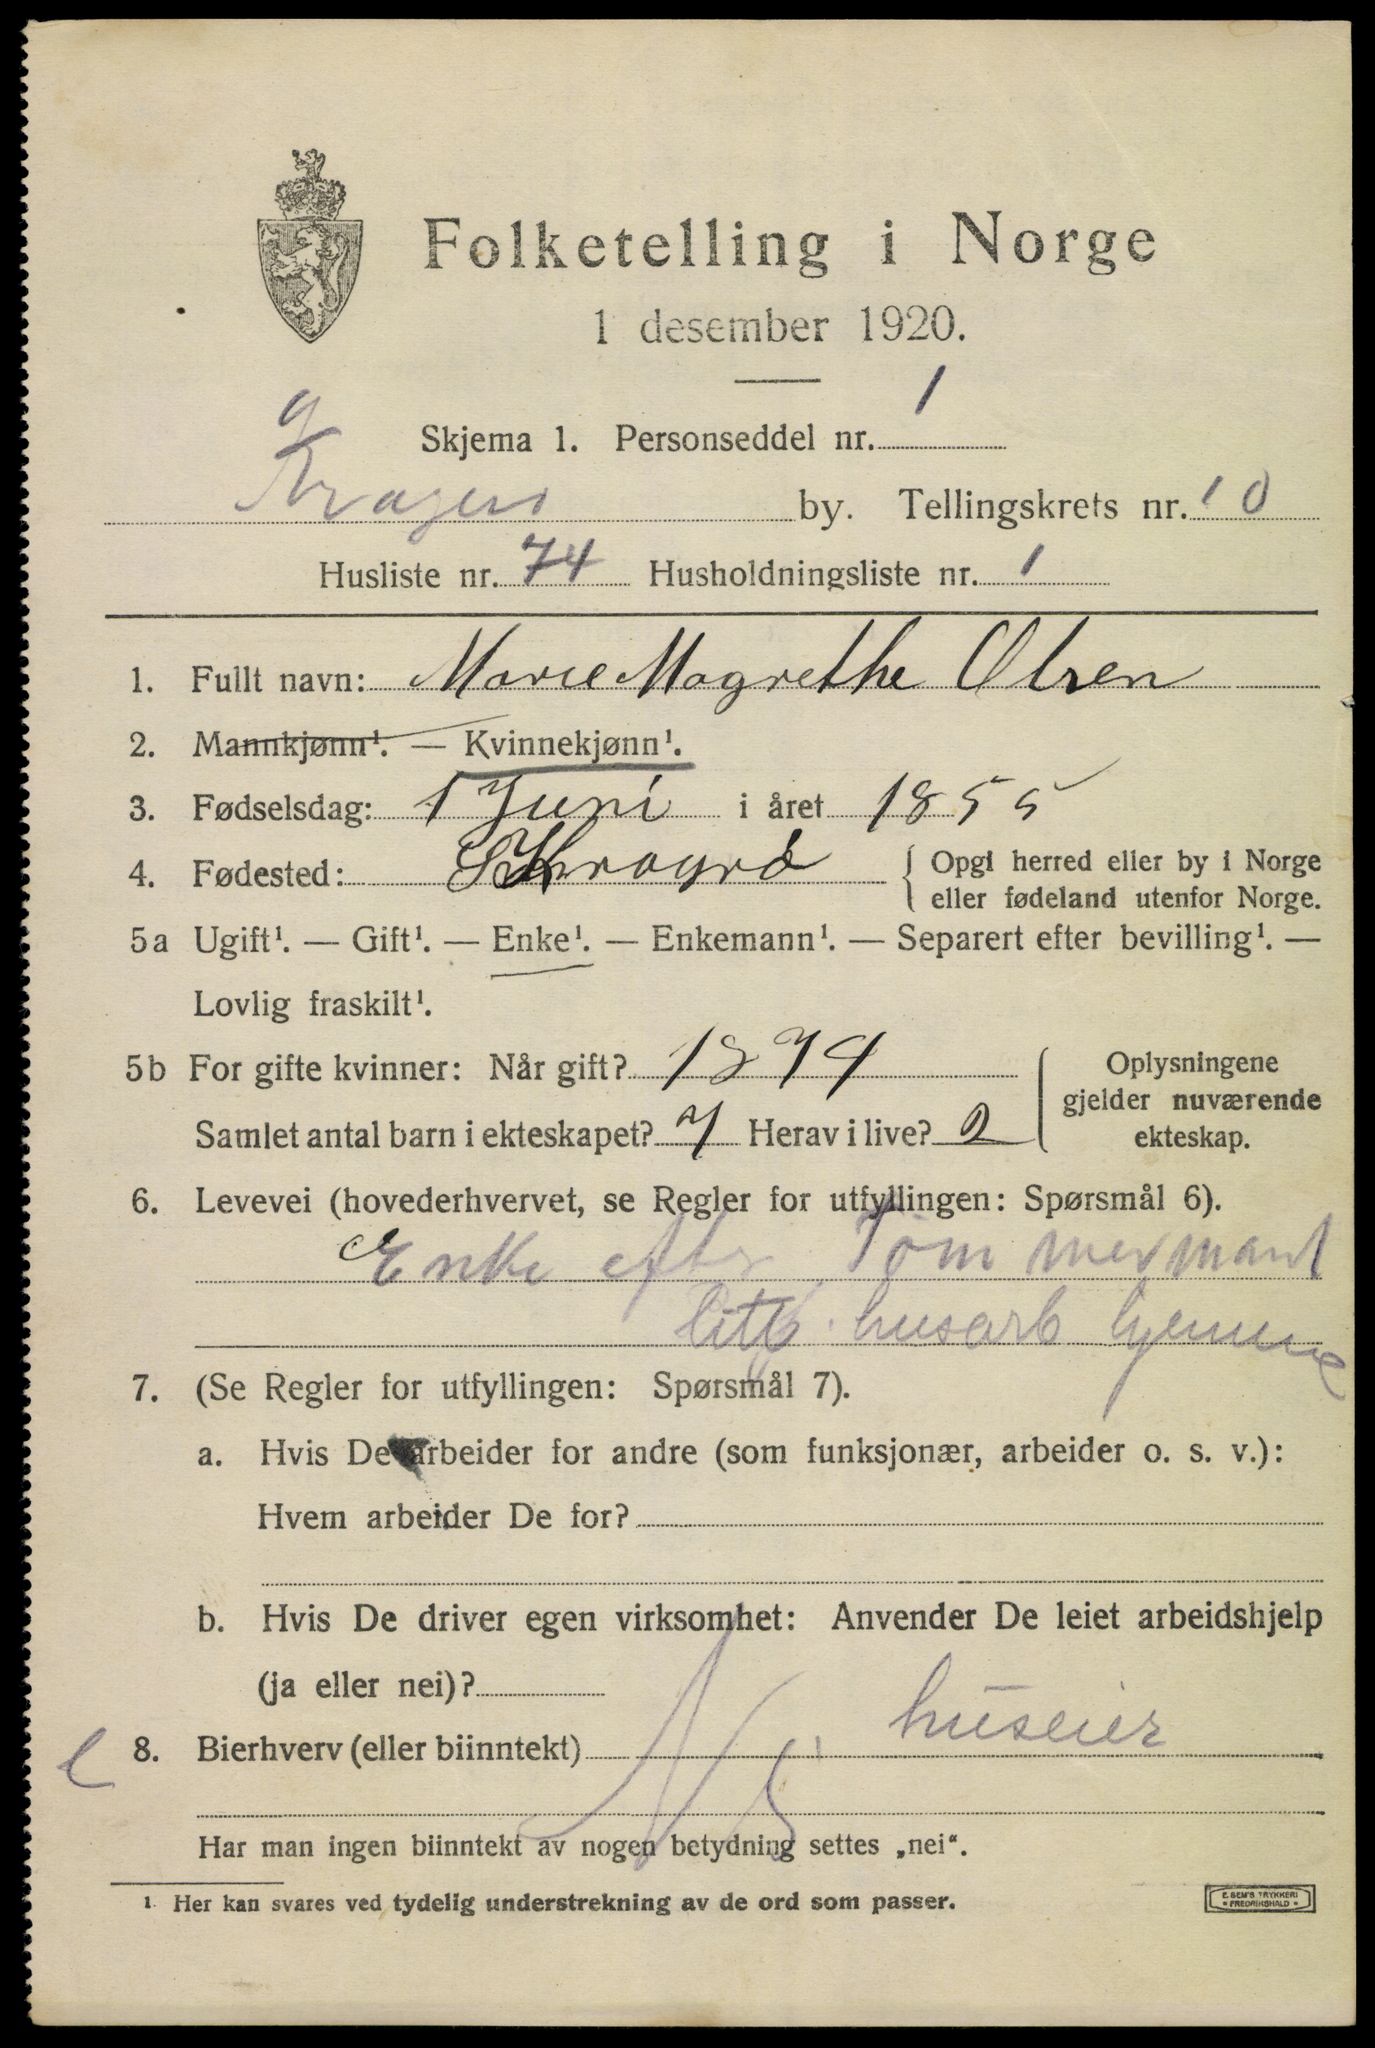 Folketelling i Norge
1 desember 1920.
Skjema 1. Personseddel nr. 1
Kragerø by. Tellingskrets nr. 10
Husliste nr. 74 Husholdningsliste nr. 1
1. Fullt navn: Marie Magrethe Olsen
2. Mannkjønn¹. — Kvinnekjønn¹.
3. Fødselsdag: 1 Juni i året 1855
4. Fødested: Skragrø Opgi herred eller by i Norge
eller fødeland utenfor Norge.
5a Ugift¹. — Gift¹. — Enke¹. — Enkemann¹. — Separert efter bevilling¹. —
Lovlig fraskilt¹.
5b For gifte kvinner: Når gift? 1874
Samlet antal barn i ekteskapet? 7 Herav i live? 2
Oplysningene
gjelder nuværende
ekteskap.
6. Levevei (hovederhvervet, se Regler for utfyllingen: Spørsmål 6).
Enke efter Tømmermand
litt husarb hjemme
7. (Se Regler for utfyllingen: Spørsmål 7).
a. Hvis De arbeider for andre (som funksjonær, arbeider o. s. v.):
Hvem arbeider De for?
b. Hvis De driver egen virksomhet: Anvender De leiet arbeidshjelp
(ja eller nei)?
huseier
8. Bierhverv (eller biinntekt) Nei
Har man ingen biinntekt av nogen betydning settes „nei“.
1. Her kan svares ved tydelig understrekning av de ord som passer.
E. SEM'S TRYKKERI
FREDRIKSHALD